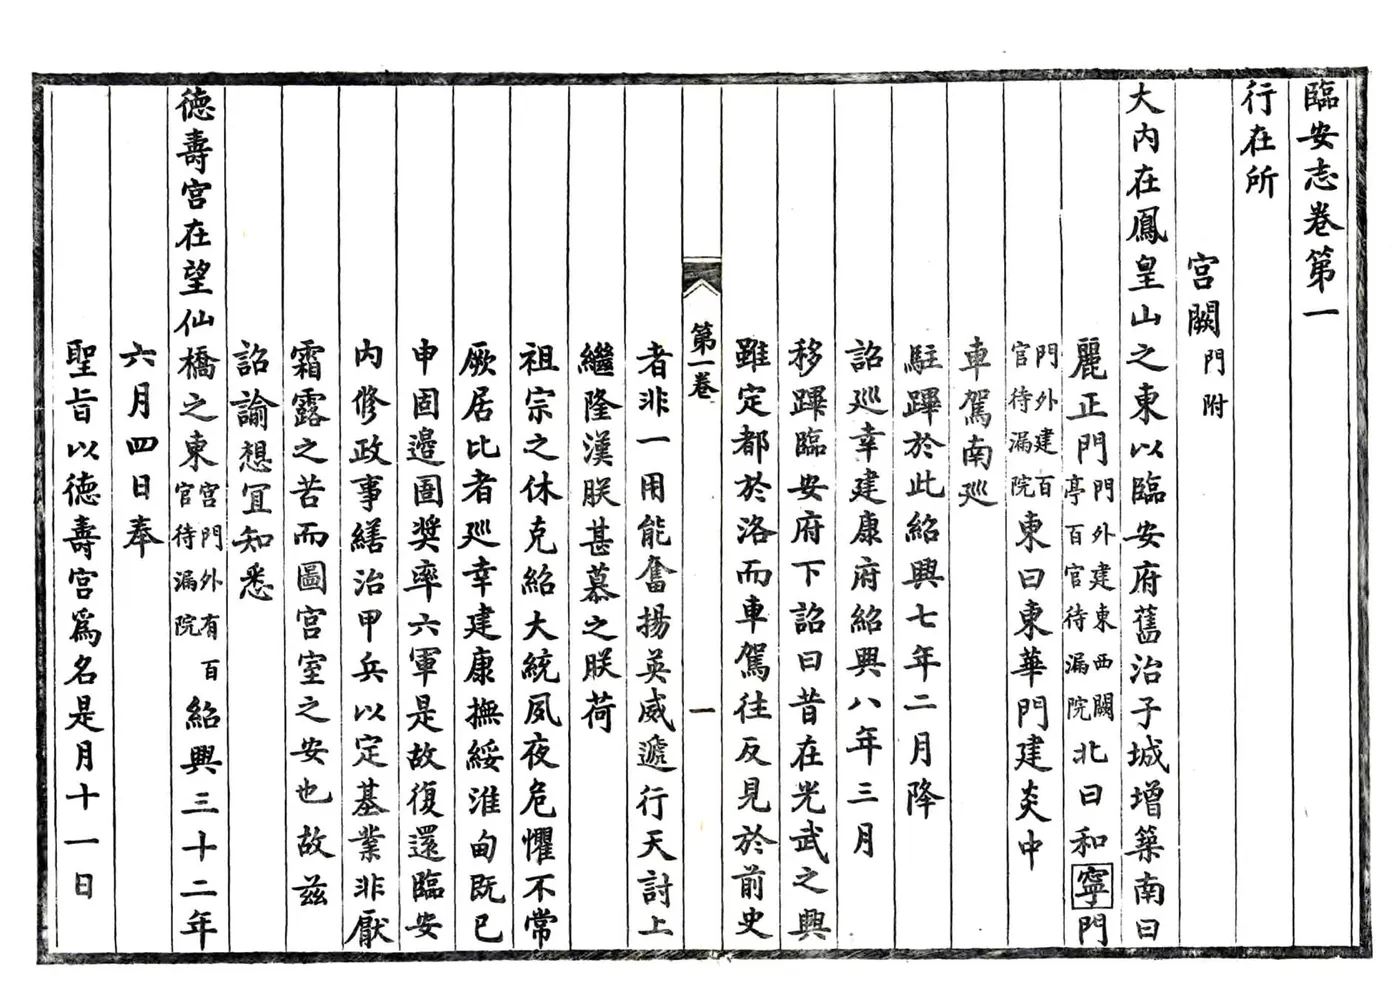 臨安志卷第一
行在所
宮闕門附
大內在鳳皇山之東以臨安府舊治子城增築南曰
麗正門門外建東西闕亭百官待漏院北曰和寧門
門外建百官待漏院東曰東華門建炎中
車駕南廵
駐蹕於此紹興七年二月降
詔廵幸建康府紹興八年三月
移蹕臨安府下詔曰昔在光武之興
雖定都於洛而車駕往反見於前史
第一卷 一
者非一用能奮揚英威遞行天討上
繼隆漢朕甚慕之朕荷
祖宗之休克紹大統夙夜危懼不常
厥居比者廵幸建康撫綏淮甸既已
申固邉圉奬率六軍是故復還臨安
內修政事繕治甲兵以定基業非厭
霜露之苦而圖宮室之安也故茲
詔諭想冝知悉
德壽宮在望仙橋之東宮門外有百官待漏院紹興三十二年
六月四日奉
聖旨以德壽宮爲名是月十一日